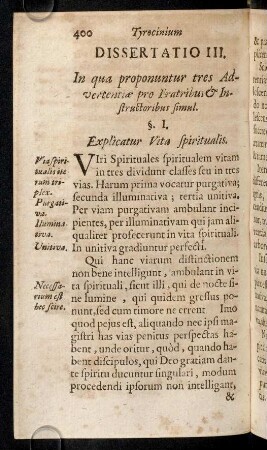 400 Tyrocinium
DISSERTATIO III.
In qua proponuntur tres Ad-
vertentiæ pro Fratribus & In-
structoribus simul.
§. I.
Explicatur Vita spiritualis.
Vita spiri-
tualis ite
rum tri-
plex.
Purgati-
va.
Ilumina-
tiva.
Unitiva.
Necessa-
rium est
hoc scire.
VIri Spirituales spiritualem vitam
in tres dividunt classes seu in tres
vias. Harum prima vocatur purgativa;
secunda illuminativa; tertia unitiva.
Per viam purgativam ambulant inci-
pientes, per illuminativam qui jam ali-
qualiter profecerunt in vita spirituali.
In unitiva gradiuntur perfecti.
Qui hanc viarum distinctionem
non bene intelligunt, ambulant in vi-
ta spirituali, sicut illi, qui de nocte si-
ne lumine, qui quidem gressus po-
nunt, sed cum timore ne errent. Imo
quod pejus est, aliquando nec ipsi ma-
gistri has vias penitus perspectas ha-
bent, unde oritur, quòd, quando ha-
bent discipulos, qui Deo gratiam dan-
te spiritu ducuntur singulari, modum
procedendi ipsorum non intelligant,
&